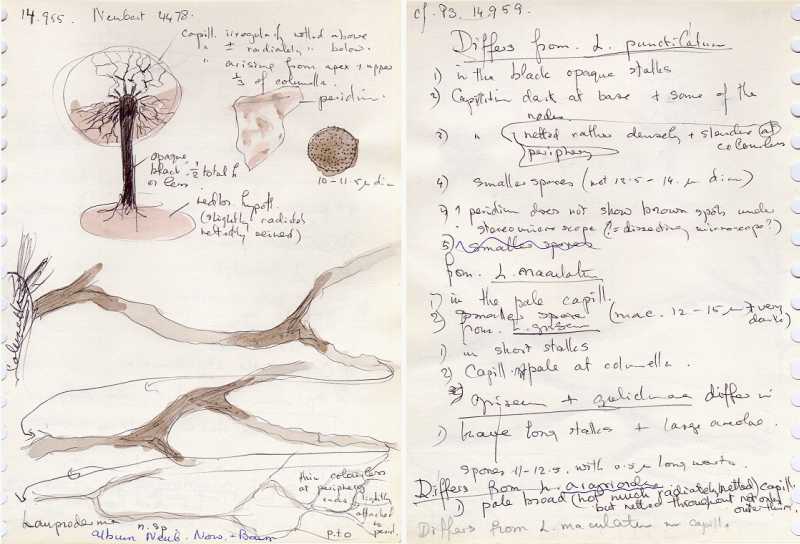 14.955 Neubert 4478.
Capill. irregularly netted above
" ± radiately " below.
" arising from apex + upper
1/3 of columella.
peridium.
opaque
black = 1/2 total h
or less.
10-11.5 µ dia
reddish hypoth
(slightly radiately
nettedly veined)
columella
thin colourless
at periphery
ends slightly
attached to perid.
Lamproderma n.sp p.t.o
album Neub. Now. + Baum
cf. P3. 14.959.
Differs from L. punctulatum
1) in the black opaque stalks
2) Capillitium dark at base + some of the
nodes
3) " netted rather densely + slender at
periphery colourless
4) smaller spores (not 13.5-14. µ diam)
peridium does not show brown spots under
stereomicroscope (= dissecting microscope?)
5) smaller spores
from L. maculatum
1) in the pale capill.
2) smaller spores (mac. 12-15 µ + very
darks)
from L. griseum
1) in short stalks
2) Capill. pale at columella.
griseum + gulielmae differ in
1) have long stalks + large areolae.
spores 11-12.5. with 0.5 µ long warts.
Differs from L. arcyrioides
1) pale broad (not much radiately netted) capill.
but netted throughout not only
outer third.
Differs from L. maculatum in capill.